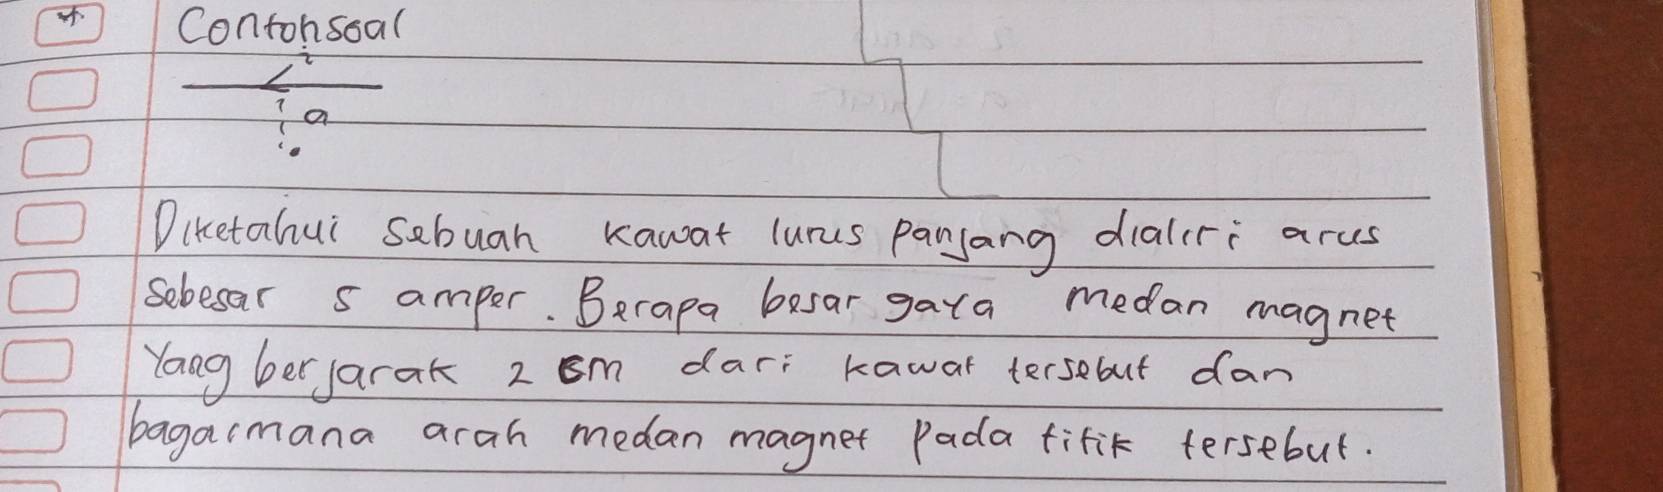 Contohsoal
i
a
Diketahui sebuah kawat lurus panjang dialiri arus
sebesar 5 amper. Berapa besar gaya medan magnet
Yang berjarak 2 cm dari kawat tersebut dan
bagaimana arah medan magnet Pada titik tersebut.